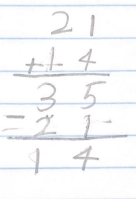 21
+14
35
-21
14